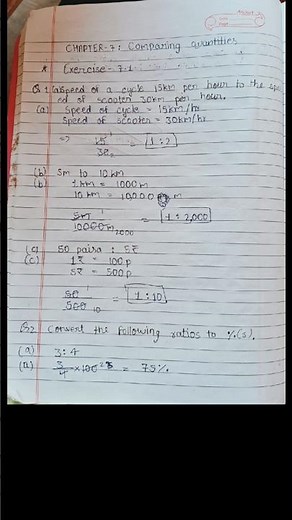 CHAPTER-7: Comparing quantities
* Exercise-7.1
Q1 (a) Speed of a cycle 15km per hour to the spe
ed of scooter 30km per hour.
(a) Speed of cycle = 15km/hr
Speed of scooter = 30km/hr
=> 15 1 / 30 2 = 1:2
(b) 5m to 10km
(b) 1km = 1000m
10km = 10,000m
5m 1 / 10000m 2000 = 1:2,000
(c) 50 paisa : 5₹
(c) 1₹ = 100p
5₹ = 500p
50 1 / 500 10 = 1:10
Q2 Convert the following ratios to %(s).
(a) 3:4
(a) 3/4 × 100 25 = 75%